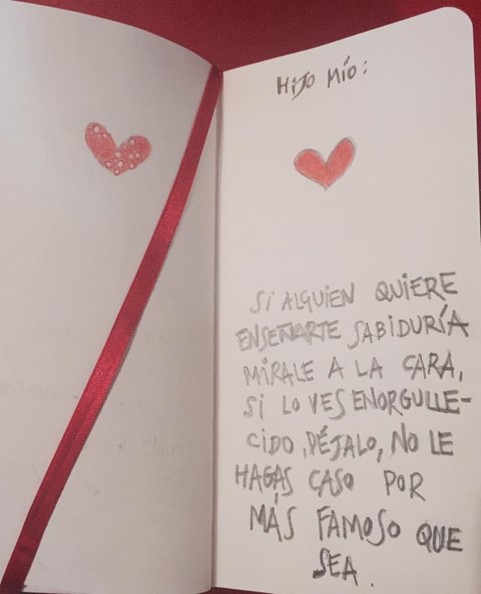 HIJO MÍO:
SI ALGUIEN QUIERE
ENSEÑARTE SABIDURÍA
MÍRALE A LA CARA,
SI LO VES ENORGULLE-
CIDO, DÉJALO, NO LE
HAGAS CASO POR
MÁS FAMOSO QUE
SEA.